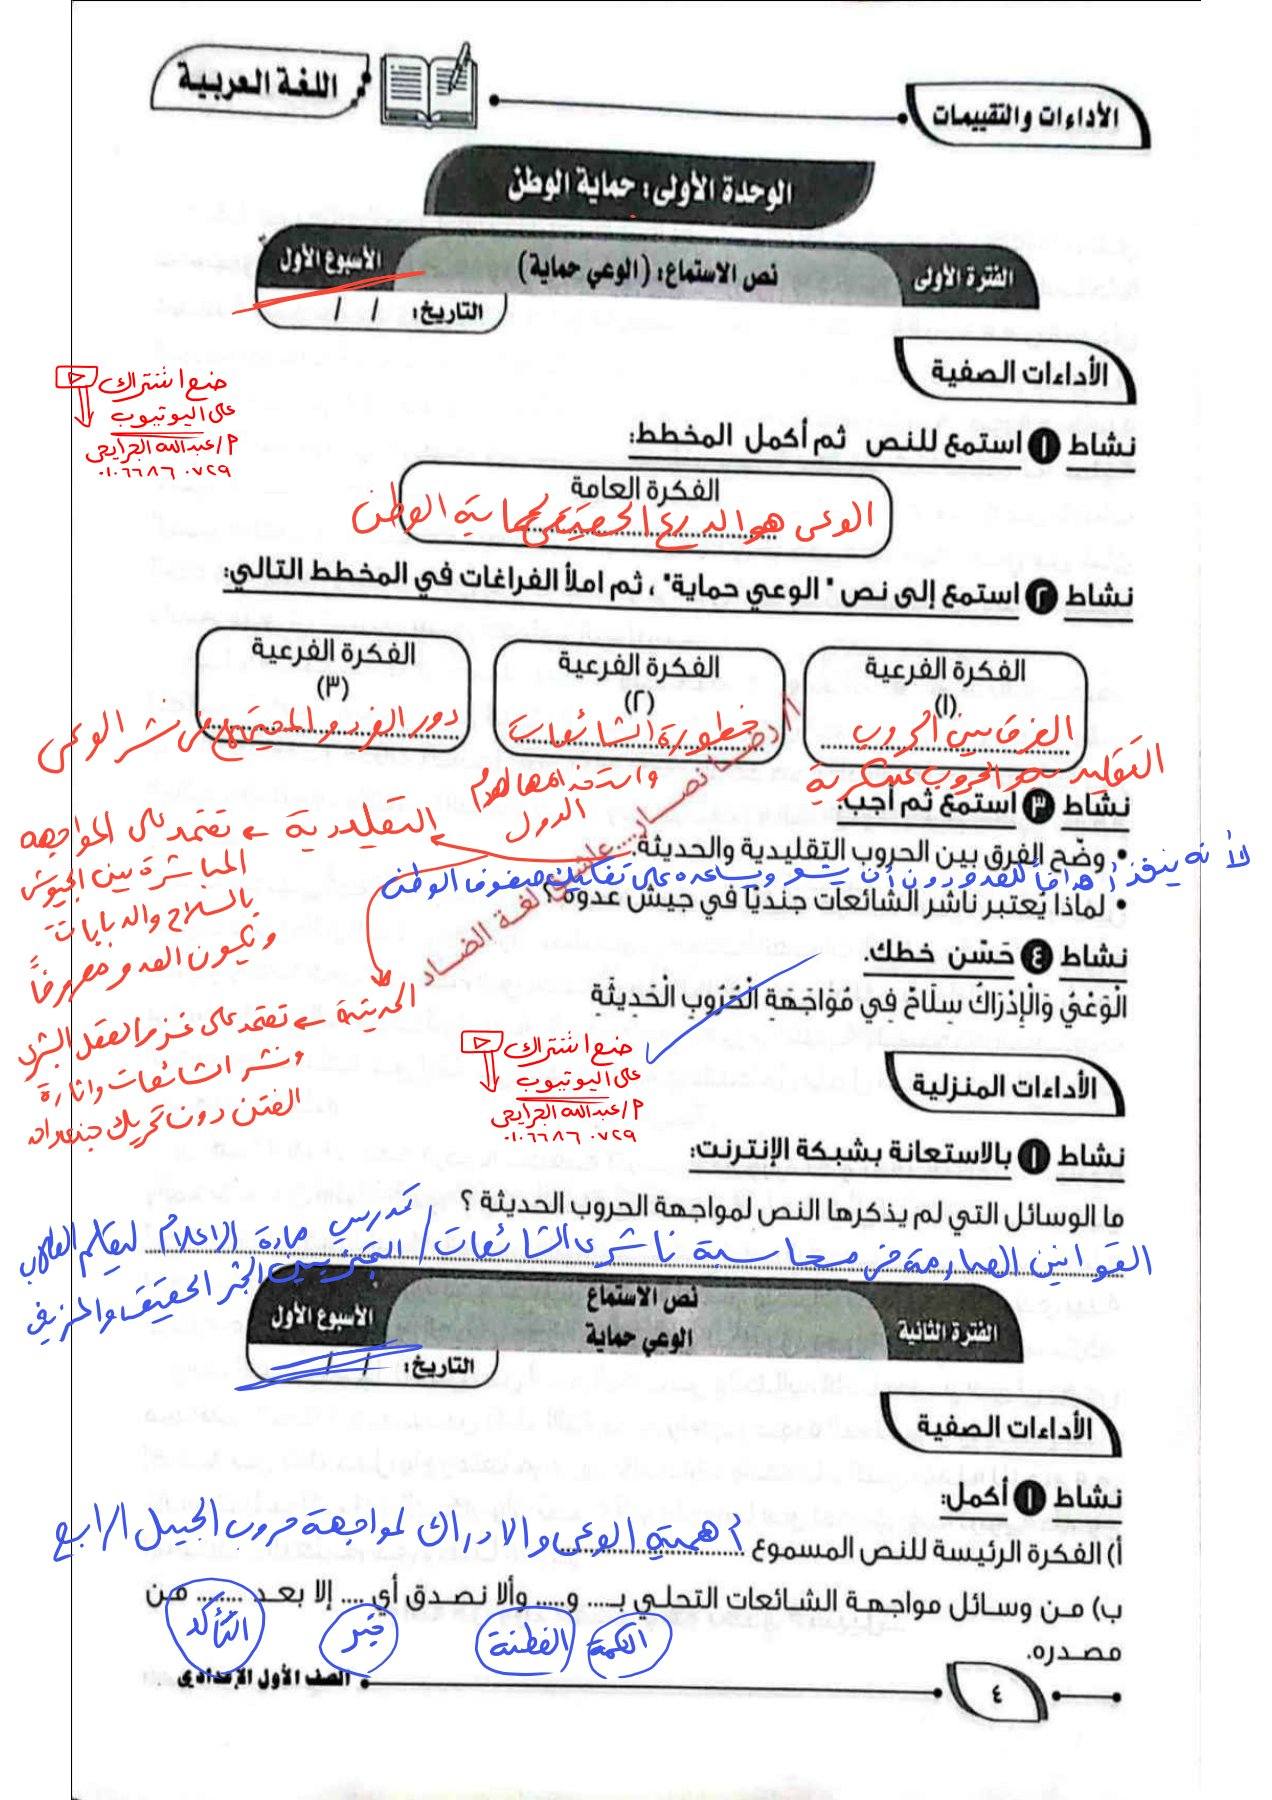 الأداءات والتقييمات
اللغة العربية
الوحدة الأولى: حماية الوطن
الفترة الأولى
نص الاستماع: (الوعي حماية)
الأسبوع الأول
التاريخ: / /
الأداءات الصفية
ضع اشتراك
على اليوتيوب
م/عبدالله الجرايحى
٠١٠٦٦٨٦٠٧٢٩
نشاط ١ استمع للنص ثم أكمل المخطط:
الفكرة العامة
الوعى هو الدرع الحصينة لحماية الوطن
نشاط ٢ استمع إلى نص "الوعي حماية"، ثم املأ الفراغات في المخطط التالي:
الفكرة الفرعية
(١)
الفرق بين الحروب
التقليدية والحروب عسكرية
الفكرة الفرعية
(٢)
خطورة الشائعات
واستخدامها لهدم
الدول
الفكرة الفرعية
(٣)
دور الفرد والمجتمع فى نشر الوعى
نشاط ٣ استمع ثم أجب:
• وضّح الفرق بين الحروب التقليدية والحديثة.
التقليدية تعتمد على المواجهة
المباشرة بين الجيوش
بالسلاح والدبابات
ويكون العدو معروفاً
الحديثة تعتمد على غزو العقل البشرى
ونشر الشائعات واثارة
الفتن دون تحريك جندى واحد
لأنه ينفذ أهدافاً للعدو دون أن يشعر ويساعده على تفكيك صفوف الوطن
• لماذا يُعتبر ناشر الشائعات جنديًا في جيش عدوه؟
نشاط ٤ حَسّن خطك.
الْوَعْيُ وَالْإِدْرَاكُ سِلَاحٌ فِي مُوَاجَهَةِ الْحُرُوبِ الْحَدِيثَةِ
عاشق لغة الضاد
ضع اشتراك
على اليوتيوب
م/عبدالله الجرايحى
٠١٠٦٦٨٦٠٧٢٩
الأداءات المنزلية
نشاط ١ بالاستعانة بشبكة الإنترنت:
ما الوسائل التي لم يذكرها النص لمواجهة الحروب الحديثة؟
القوانين الصارمة فى محاسبة ناشرى الشائعات / تدريس مادة الإعلام ليتعلم الطلاب
التمييز بين الخبر الحقيقى والمزيف
الفترة الثانية
نص الاستماع
الوعي حماية
الأسبوع الأول
التاريخ: / /
الأداءات الصفية
نشاط ١ أكمل:
أ) الفكرة الرئيسة للنص المسموع أهمية الوعى والادراك لمواجهة حروب الجيل الرابع
ب) من وسائل مواجهة الشائعات التحلي بـ..... و..... وألا نصدق أي .... إلا بعد ........ من
الحكمة الفطنة خبر التأكد
مصدره.
٤
الصف الأول الإعدادي